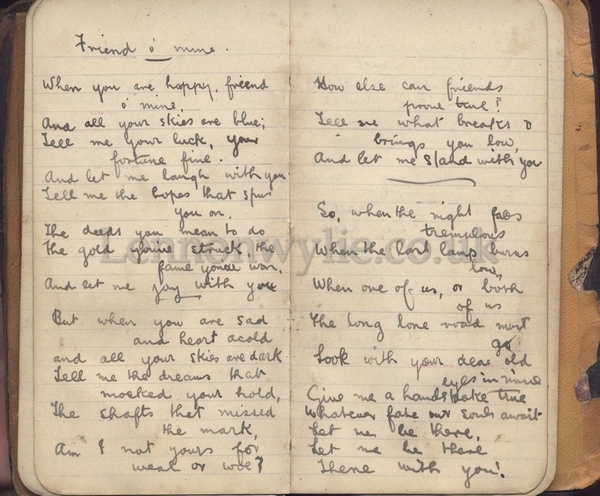 Friend o' mine.
When you are happy, friend
o' mine,
And all your skies are blue;
Tell me your luck, your
fortune fine.
And let me laugh with you.
Tell me the hopes that spur
you on.
The deeds you mean to do
The gold you've struck, the
fame you've won,
And let me joy with you
But when you are sad
and heart acold
and all your skies are dark
Tell me the dreams that
mocked your hold,
The shafts that missed
the mark,
Am I not yours for
weal or woe?
How else can friends
prove true?
Tell me what breaks &
brings you low,
And let me stand with you
So, when the night falls
tremulous
When the last lamp burns
low,
When one of us, or both
of us
The long lone road must
go
Look with your dear old
eyes in mine
Give me a handshake true
Whatever fate our souls await
Let me be there,
Let me be there
There with you!
Lennonwylie.co.uk